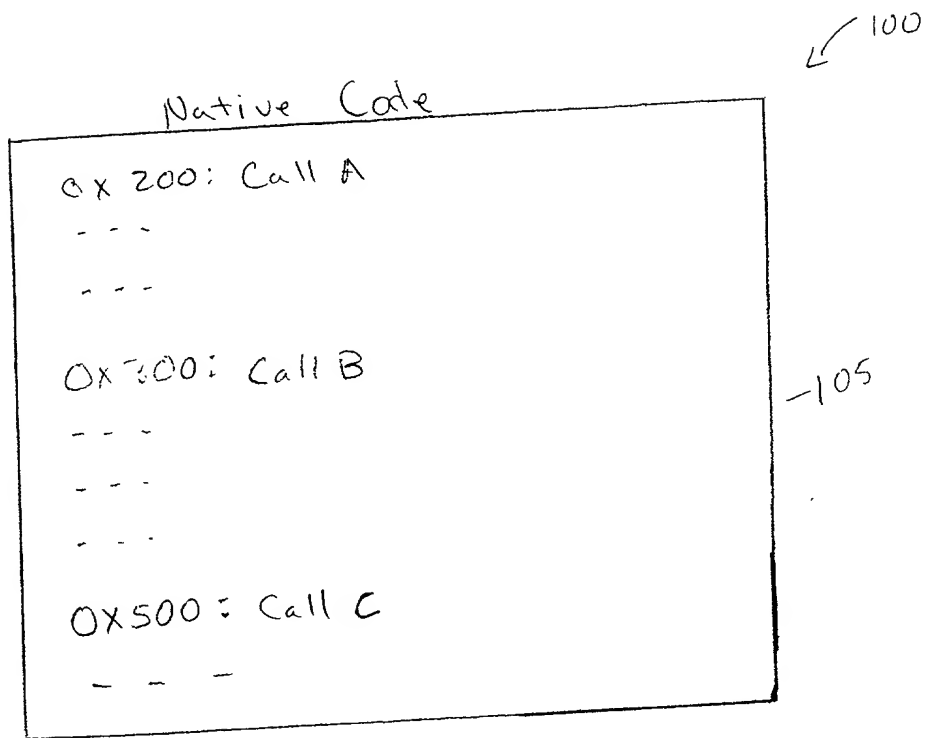 100
Native Code
0x 200: Call A
- - -
- - -
Call B
- - -
- - -
- - -
0x500: Call C
- - -
105